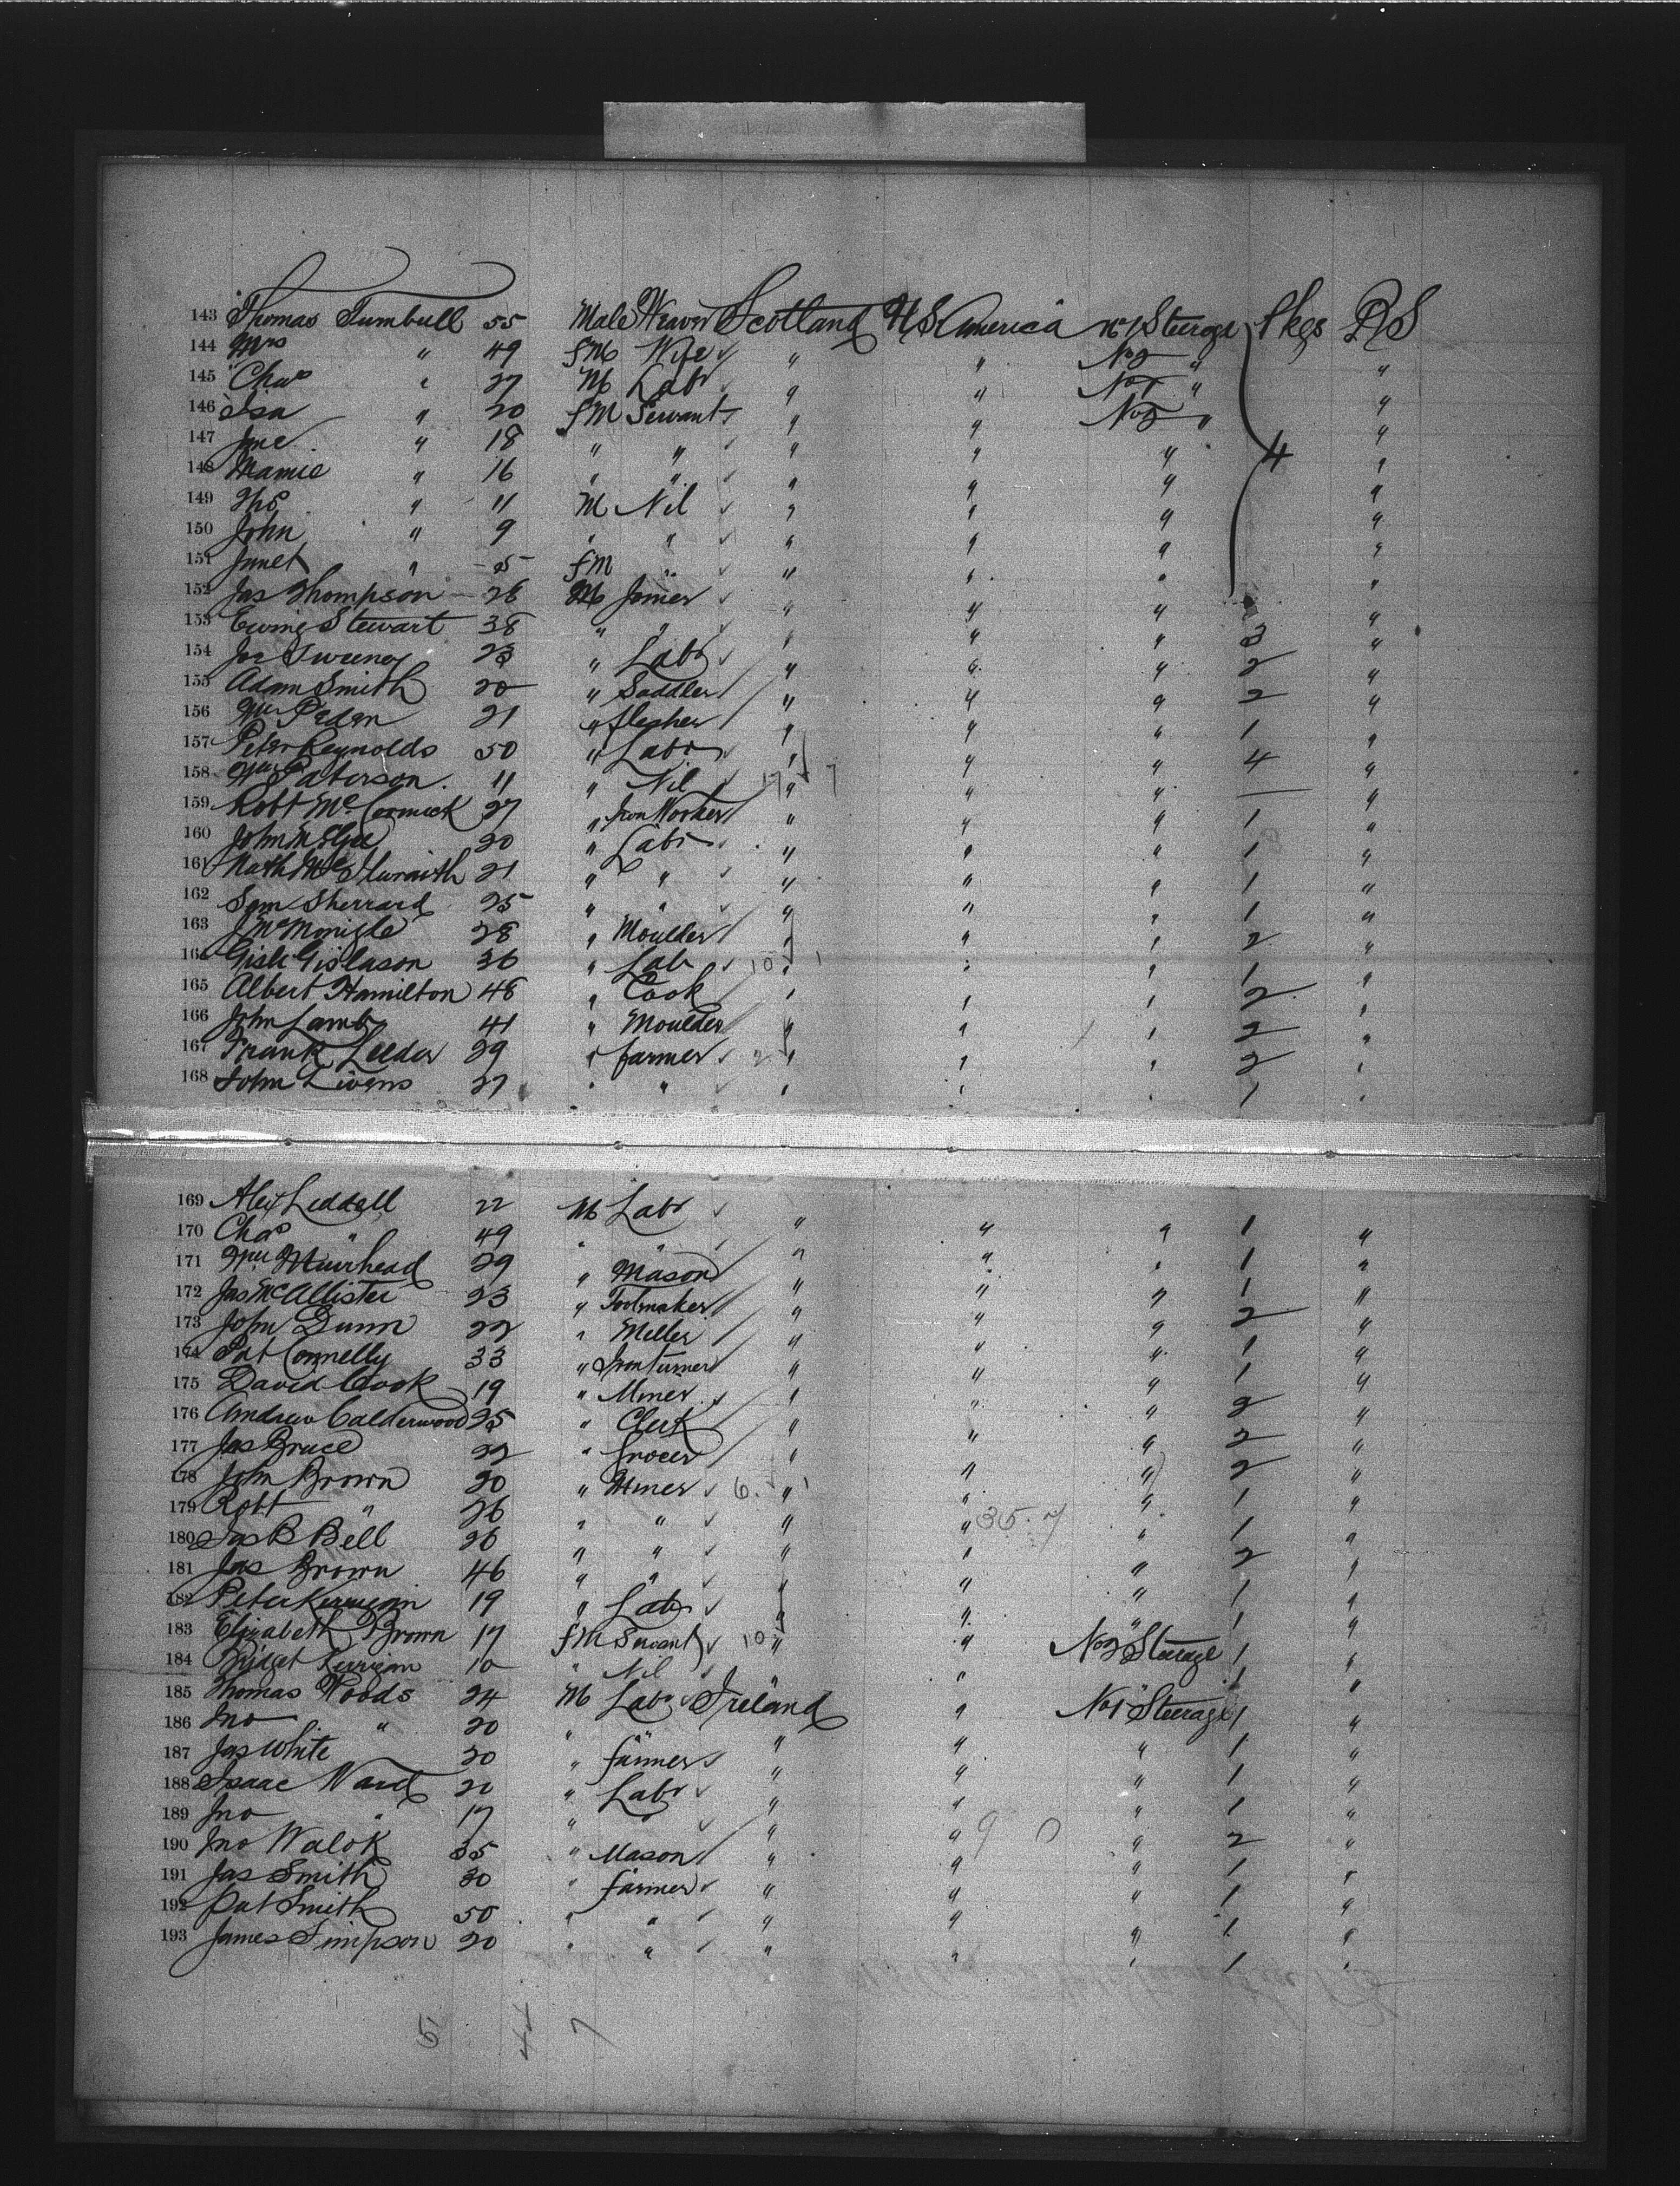 143 Thomas Turnbull 55 Male Weaver Scotland U S America No 1 Steerage Pkgs P S
144 Mrs " 49 fM Wife " " No 2 " "
145 Chas " 27 M Labr " " No 1 " "
146 Isa " 20 fM Servant " " No 2 " "
147 Jane " 18 " " " " " 4 "
148 Mamie " 16 " " " " " "
149 Tho " 11 M Nil " " " "
150 John " 9 " " " " " "
151 Janet " 5 fM " " " " "
152 Jas Thompson 26 M Joiner " " " "
153 Ewing Stewart 38 " " " " " 3 "
154 Jas Sweeney 23 " Labr " " " 2 "
155 Adam Smith 20 " Saddler " " " 2 "
156 Wm Peden 21 " flesher " " " 1 "
157 Peter Reynolds 50 " Labr " " " 4 "
158 Wm Paterson 11 " Nil 17 " 7 " " — "
159 Robt McCormick 27 " Iron Worker " " " 1 "
160 John McGee 20 " Labr " " " 1 "
161 Nath McIlwraith 21 " " " " " 1 "
162 Sam Sherrard 25 " " " " " 1 "
163 J McMonigle 28 " Moulder " " " 2 "
164 Gisli Gislason 36 " Lab 10 " 1 " " 1 "
165 Albert Hamilton 48 " Cook " " " 2 "
166 John Lamb 41 " Moulder " " " 2 "
167 Frank Leeder 29 " farmer 2 " " " 2 "
168 John Livens 27 " " " " " 1 "
169 Alex Leddell 22 M Labr " " " 1 "
170 Chas " 49 " " " " " 1 "
171 Wm Muirhead 29 " Mason " " " 1 "
172 Jas McAllister 23 " Toolmaker " " " 2 "
173 John Dunn 22 " Miller " " " 1 "
174 Pat Connelly 33 " Iron turner " " " 1 "
175 David Cook 19 " Miner " " " 2 "
176 Andrew Calderwood 25 " Clerk " " " 2 "
177 Jas Bruce 22 " Grocer " " " 2 "
178 John Brown 20 " Miner 6 " 1 " " 1 "
179 Robt " 26 " " " " 35. 7 " 1 "
180 Jas B Bell 26 " " " " " 2 "
181 Jas Brown 46 " " " " " 1 "
182 Peter Kerrigan 19 " Labr " " " 1 "
183 Elizabeth Brown 17 fM Servant 10 " " No 2 Steerage 1 "
184 Bridget Kerrigan 10 " Nil " " " 1 "
185 Thomas Woods 24 M Labr Ireland " No 1 Steerage 1 "
186 Jno " 20 " " " " " 1 "
187 Jas White 20 " farmer " " " 1 "
188 Isaac Ward 22 " Labr " " " 1 "
189 Jno " 17 " " " " 9 0 " 2 "
190 Jno Walok 35 " Mason " " " 1 "
191 Jas Smith 30 " farmer " " " 1 "
192 Pat Smith 50 " " " " " 1 "
193 James Simpson 20 " " " " " 1 "
5 44 7